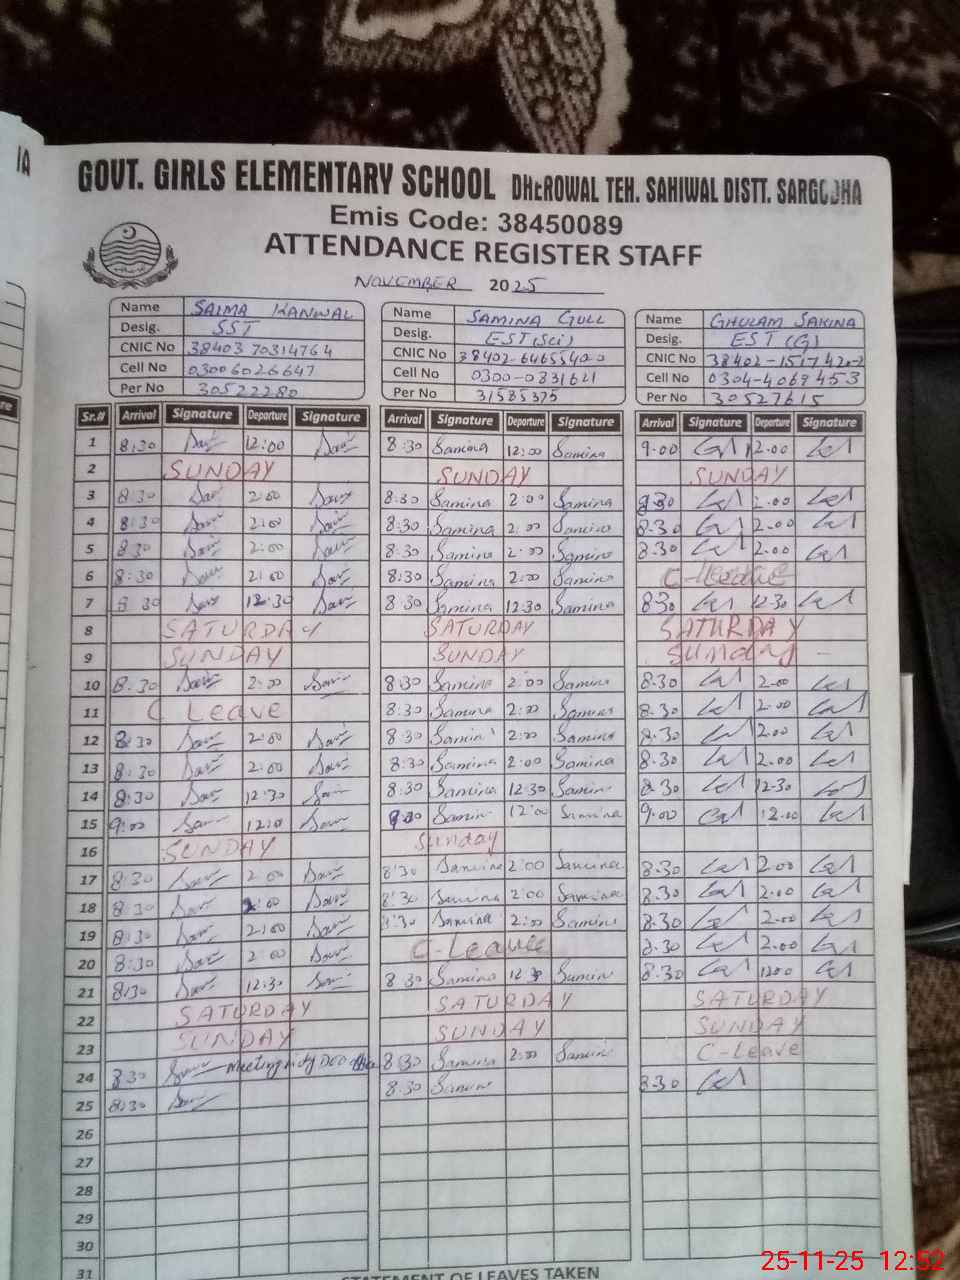 IA
GOVT. GIRLS ELEMENTARY SCHOOL DHEROWAL TEH. SAHIWAL DISTT. SARGODHA
Emis Code: 38450089
ATTENDANCE REGISTER STAFF
NOVEMBER 2025
Name SAIMA KANWAL Name SAMINA GULL Name GHULAM SAKINA
Desig. SST Desig. EST(Sci) Desig. EST(G)
CNIC No 38403 70314764 CNIC No CNIC No
Cell No 03006026647 Cell No 0300-0831621 Cell No 0304-4069453
Per No 30522280 Per No 31585375 Per No 30527615
Sr.# Arrival Signature Departure Signature Arrival Signature Departure Signature Arrival Signature Departure Signature
1 8:30 12:00 8:30 Samina 12:00 Samina 9.00 12.00
2 SUNDAY SUNDAY SUNDAY
3 8:30 2:00 8:30 Samina 2:00 Samina 8.30 2.00
4 8:30 2:00 8:30 Samina 2:00 Samina 8.30 2.00
5 8:30 2:00 8:30 Samina 2:00 Samina 8.30 2.00
6 8:30 2:00 8:30 Samina 2:00 Samina C-Leave
7 8:30 12:30 8:30 Samina 12:30 Samina 8.30 12.30
8 SATURDAY SATURDAY SATURDAY
9 SUNDAY SUNDAY Sunday
10 8:30 2:00 8:30 Samina 2:00 Samina 8.30 2.00
11 C Leave 8:30 Samina 2:00 Samina 8.30 2.00
12 8:30 2:00 8:30 Samina 2:00 Samina 8.30 2.00
13 8:30 2:00 8:30 Samina 2:00 Samina 8.30 2.00
14 8:30 12:30 8:30 Samina 12:30 Samina 8.30 12.30
15 9:00 12:00 Samin 12:00 Samina 9.00 12.00
16 SUNDAY Sunday
17 8:30 2:00 8:30 Samina 2:00 Samina 8.30 2.00
18 8:30 2:00 8:30 Samina 2:00 Samina 8.30 2.00
19 8:30 2:00 8:30 Samina 2:00 Samina 8.30 2.00
20 8:30 2:00 C-Leave 8.30 2.00
21 8:30 12:30 8:30 Samina Samina 8.30 1200
22 SATURDAY SATURDAY SATURDAY
23 SUNDAY SUNDAY SUNDAY
24 8:30 meeting DEO office 8:30 Samina 2:00 Samina C-Leave
25 8:30 8:30 Samina 8.30
26
27
28
29
30
31
STATEMENT OF LEAVES TAKEN
25-11-25 12:52